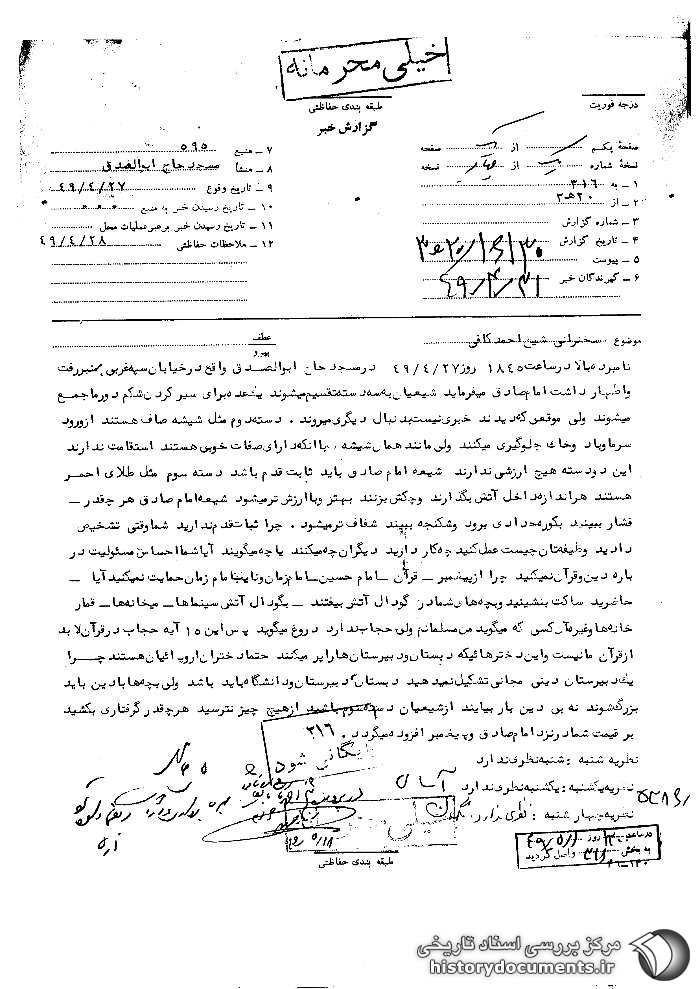 خیلی محرمانه
طبقه بندی حفاظتی
درجه فوریت
گزارش خبر
صفحهٔ یکم از صفحه
نسخهٔ شماره از نسخه
۱ ـ به ۳۱۶
۲ ـ از ۲۰ هـ ۳
۳ ـ شماره گزارش
۴ ـ تاریخ گزارش
۵ ـ پیوست
۶ ـ گیرندگان خبر
۷ ـ منبع ۵۹۵
۸ ـ منشأ مسجد حاج ابوالصدق
۹ ـ تاریخ وقوع ۴۹/۴/۲۷
۱۰ ـ تاریخ رسیدن خبر به منبع
۱۱ ـ تاریخ رسیدن خبر برهبر عملیات محل
۱۲ ـ ملاحظات حفاظتی ۴۹/۴/۲۸
موضوع : سخنرانی شیخ احمد کافی
عطف
پیرو
نامبرده بالا در ساعت ۱۸۴۵ روز ۴۹/۴/۲۷ در مسجد حاج ابوالصدق واقع در خیابان سپه غربی بمنبر رفت
و اظهار داشت امام صادق میفرماید شیعیان به سه دسته تقسیم میشوند یکعده برای سیر کردن شکم دور ما جمع
میشوند ولی موقعی که دیدند خبری نیست بدنبال دیگری میروند . دسته دوم مثل شیشه صاف هستند از ورود
سرما و باد و خاک جلوگیری میکنند ولی مانند همان شیشه ، با آنکه دارای صفات خوبی هستند استقامت ندارند
این دو دسته هیچ ارزشی ندارند شیعه امام صادق باید ثابت قدم باشد دسته سوم مثل طلای احمر
هستند هر اندازه داخل آتش بگذارند و چکش بزنند بهتر و با ارزش تر میشود شیعه امام صادق هر چقدر ـ
فشار ببیند بکوره حدادی برود و شکنجه ببیند شفاف تر میشود . چرا ثبات قدم ندارید شما وقتی تشخیص
دادید وظیفه تان چیست عمل کنید چه کار دارید دیگران چه میکنند یا چه میگویند آیا شما احساس مسئولیت در
باره دین و قرآن نمیکنید چرا از پیغمبر ـ قرآن ـ امام حسین ـ امام زمان و نایبان امام زمان حمایت نمیکنید آیا ـ
حاضرید ساکت بنشینید و بچه های شما در گودال آتش بیفتند ـ بگودال آتش سینماها ـ میخانه ها ـ قمار
خانه ها و غیره آن کسی که میگوید من مسلمانم ولی حجاب ندارد دروغ میگوید پس این ۱۵ آیه حجاب در قرآن لابد
از قرآن ما نیست و این دخترهائیکه دبستان و دبیرستان ها را پر میکنند حتما دختران اروپائیان هستند چرا
یک دبیرستان دینی مجانی تشکیل نمیدهید دبستان دبیرستان و دانشگاه باید باشد ولی بچه ها با دین باید
بزرگ شوند نه بی دین بار بیایند از شیعیان دسته سوم باشید از هیچ چیز نترسید هر چقدر گرفتاری بکشید
بر قیمت شما در نزد امام صادق و پیغمبر افزوده میگردد . ۳۱۶
نظریه شنبه : شنبه نظری ندارد
نظریه یکشنبه : یکشنبه نظری ندارد
نظریه چهارشنبه : نظری ندارد
بایگانی شود
خیلی
طبقه بندی حفاظتی
در ساعت روز
به بخش ۳۱۶ واصل گردید
مرکز بررسی اسناد تاریخی
historydocuments.ir